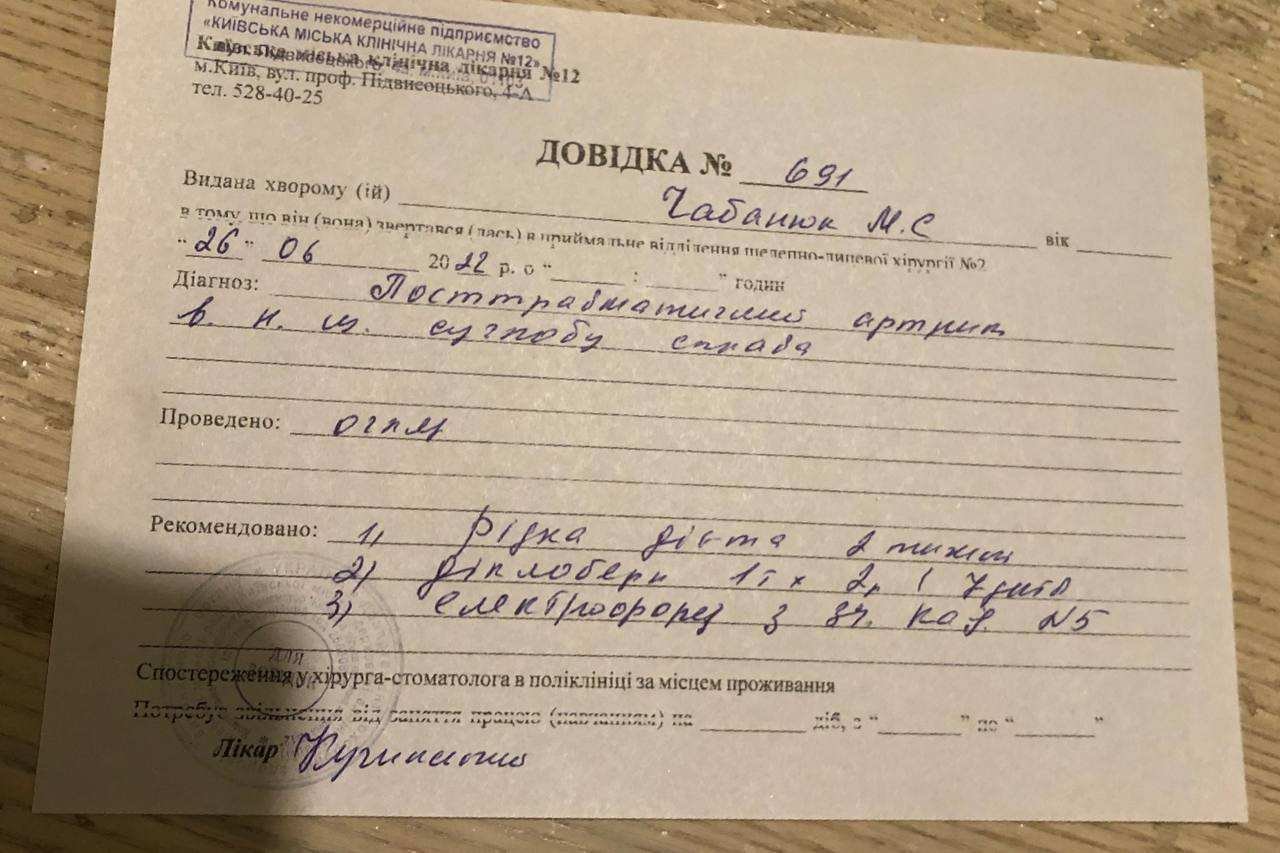 Комунальне некомерційне підприємство
«КИЇВСЬКА МІСЬКА КЛІНІЧНА ЛІКАРНЯ №12»
Київська міська клінічна лікарня №12
м.Київ, вул. проф. Підвисоцького, 4-А
тел. 528-40-25
ДОВІДКА № 691
Видана хворому (ій) Чабанюк М.С вік
в тому, що він (вона) звертався (лась) в приймальне відділення щелепно-лицевої хірургії №2
"26" 06 2022 р. о " : " годин
Діагноз: Посттравматичний артрит
в. н. щ. суглобу справа
Проведено: огляд
Рекомендовано: 1) рідка дієта 2 тижні
2) діклоберл 1т х 2р 7днів
3) електрофорез з N5
Спостереження у хірурга-стоматолога в поліклініці за місцем проживання
Потребує звільнення від заняття працею (навчанням) на діб, з " " по " "
Лікар